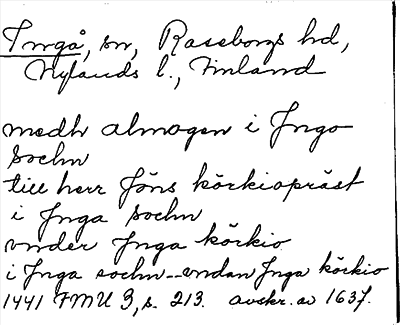 Ingå, sn, Raseborgs hd,
Nylands l., Finland
medh almogen i Ingo
sochn
till herr Jöns körkiopräst
i Inga sochn
vnder Inga körkio
i Inga sochn--vndan Inga körkio
1441 FMU 3, s. 213. avskr. av 1637.